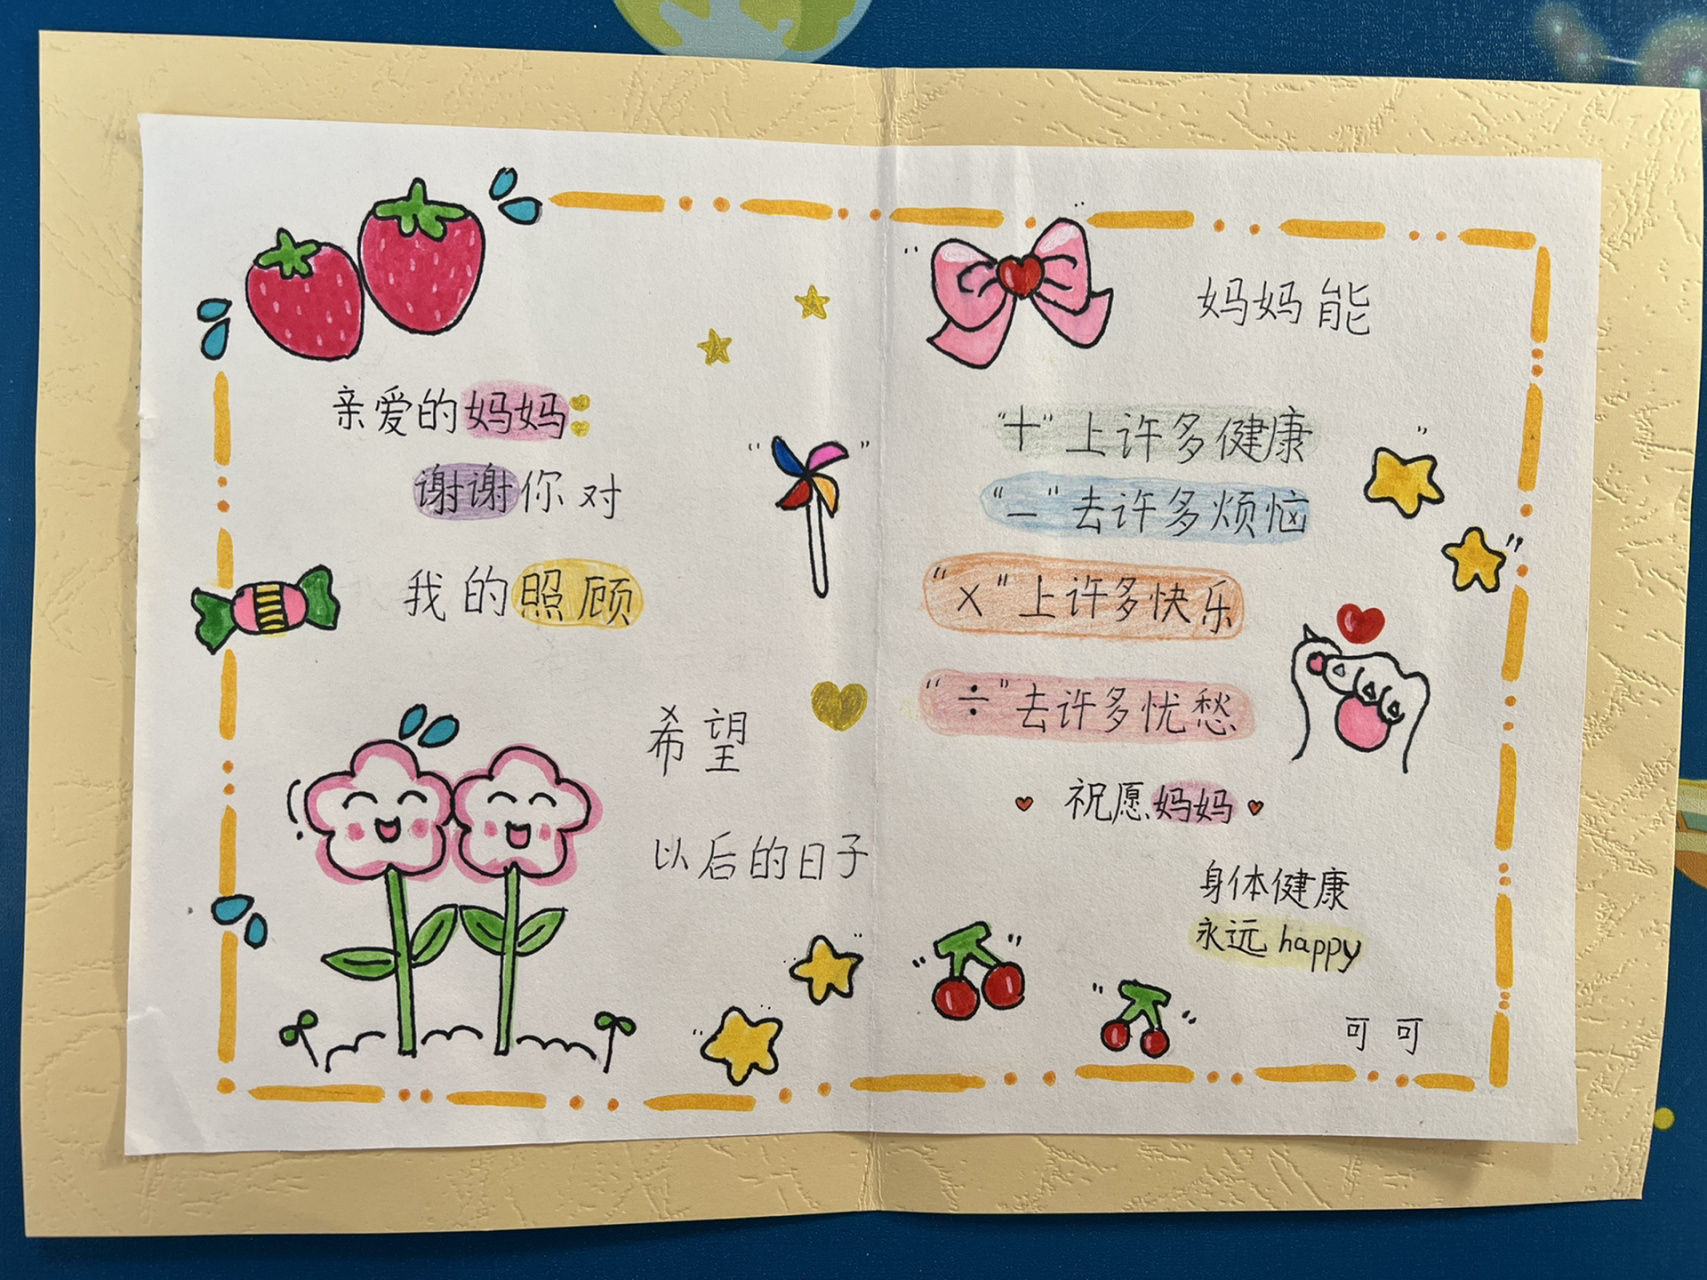 亲爱的妈妈:
谢谢你对
我的照顾
希望
以后的日子
妈妈能
"十"上许多健康
"一"去许多烦恼
"×"上许多快乐
"÷"去许多忧愁
祝愿妈妈
身体健康
永远happy
可可